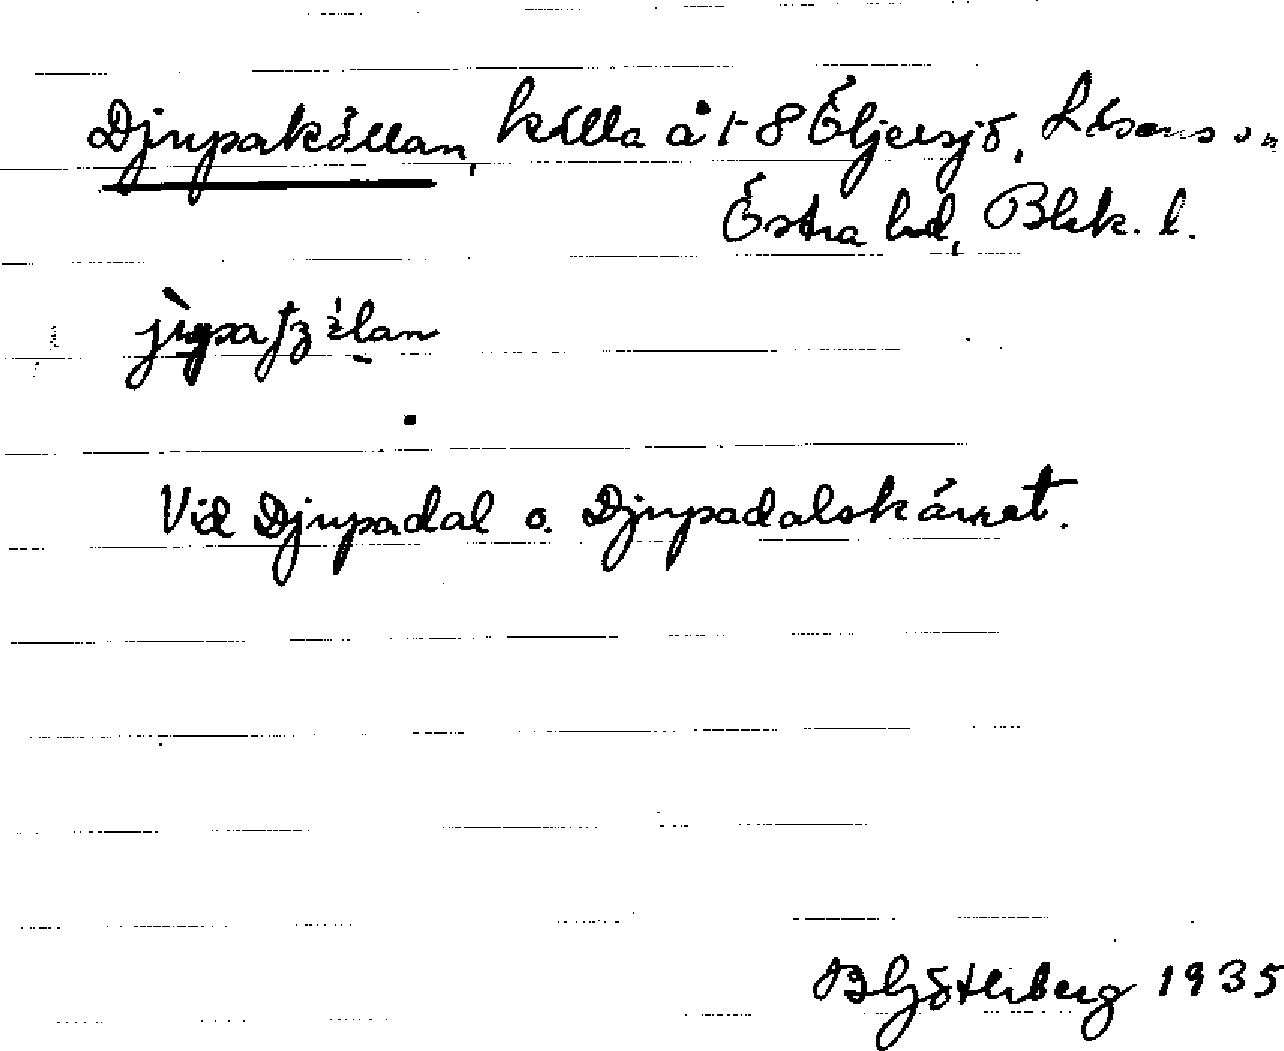 Djupakällan, källa å t 8 Öljersjö, Lösens sn
Östra hd, Blek. l.
Vid Djupadal o. Djupadalskärret.
B Göterberg 1935